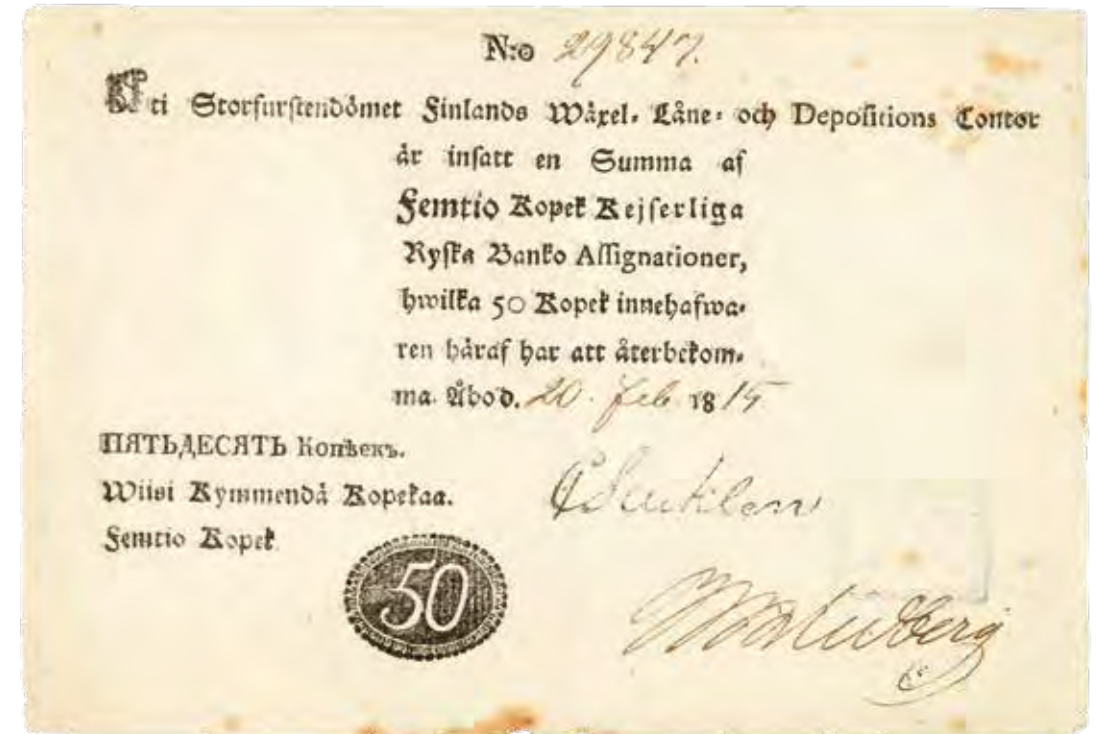 N:o 29847.
Uti Storfurstendömet Finlands Wäxel- Låne- och Depositions Contor
är insatt en Summa af
Femtio Kopek Kejserliga
Ryska Banko Assignationer,
hwilka 50 Kopek innehafwa-
ren häraf har att återbekom-
ma. Åbo d. 20. Feb. 1815
ПЯТЬДЕСЯТЬ Копѣекъ.
Wiisi Kymmendä Kopekaa.
Femtio Kopek
50